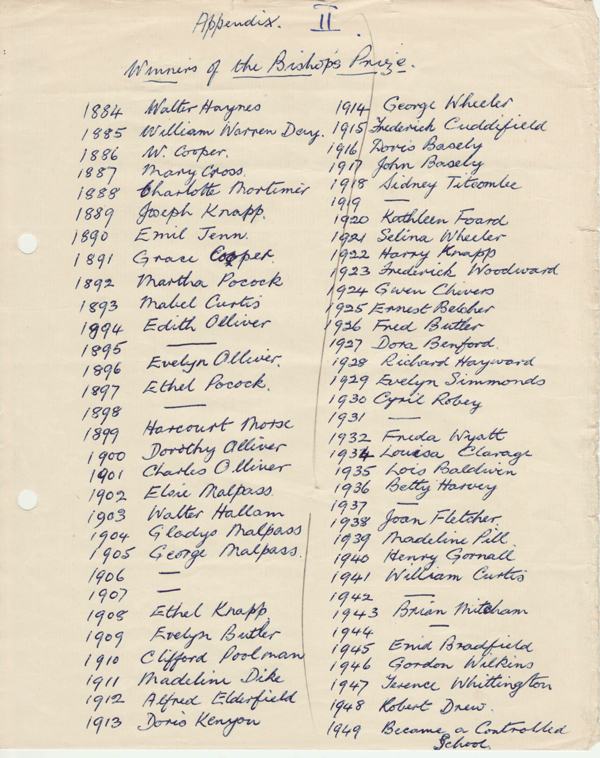 Appendix. II
Winners of the Bishop's Prize.
1884 Walter Haynes
1885 William Warren Day.
1886 W. Cooper.
1887 Mary Cross.
1888 Charlotte Mortimer
1889 Joseph Knapp.
1890 Emil Jenn.
1891 Grace Cooper.
1892 Martha Pocock
1893 Mabel Curtis
1894 Edith Olliver
1895 —
1896 Evelyn Olliver.
1897 Ethel Pocock.
1898 —
1899 Harcourt Morse
1900 Dorothy Olliver
1901 Charles Olliver
1902 Elsie Malpass
1903 Walter Hallam
1904 Gladys Malpass
1905 George Malpass.
1906 —
1907 —
1908 Ethel Knapp
1909 Evelyn Butler
1910 Clifford Poolman
1911 Madeline Dike
1912 Alfred Elderfield
1913 Doris Kenyon
1914 George Wheeler
1915 Frederick Cuddifield
1916 Doris Basely
1917 John Basely
1918 Sidney Titcombe
1919 —
1920 Kathleen Foard
1921 Selina Wheeler
1922 Harry Knapp
1923 Frederick Woodward
1924 Gwen Chivers
1925 Ernest Belcher
1926 Fred Butler
1927 Dora Benford.
1928 Richard Hayward
1929 Evelyn Simmonds
1930 Cyril Robey
1931 —
1932 Freda Wyatt
1934 Louisa Clarage
1935 Lois Baldwin
1936 Betty Harvey
1937 —
1938 Joan Fletcher.
1939 Madeline Pill.
1940 Henry Gornall
1941 William Curtis
1942 —
1943 Brian Mitcham
1944 —
1945 Enid Bradfield
1946 Gordon Wilkins
1947 Terence Whittington
1948 Robert Drew.
1949 Became a Controlled
School.